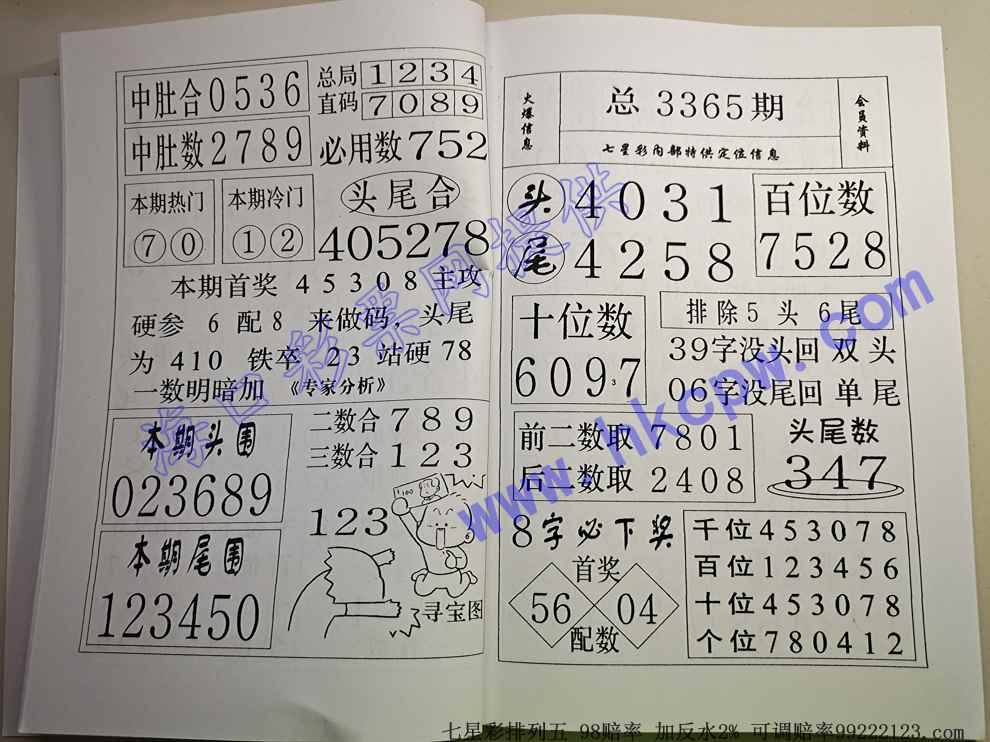 中肚合0536
总局 1 2 3 4
直码 7 0 8 9
中肚数2789
必用数752
本期热门
⑦⓪
本期冷门
①②
头尾合
405278
本期首奖 45308主攻
硬参 6 配8 来做码，头尾
为 410 铁卒 23 站硬 78
一数明暗加 《专家分析》
本期头围
023689
二数合 789
三数合 123
本期尾围
123450
123
100
寻宝图
火爆信息
总 3365期
七星彩内部特供定位信息
会员资料
头 4031
尾 4258
百位数
7528
十位数
609³7
排除5 头 6尾
39字没头回 双 头
06字没尾回 单 尾
前二数取 7801
后二数取 2408
头尾数
347
8字必下奖
首奖
56 04
配数
千位453078
百位123456
十位453078
个位780412
海口彩票网提供
www.hkcpw.com
七星彩排列五 98赔率 加反水2% 可调赔率99222123.com